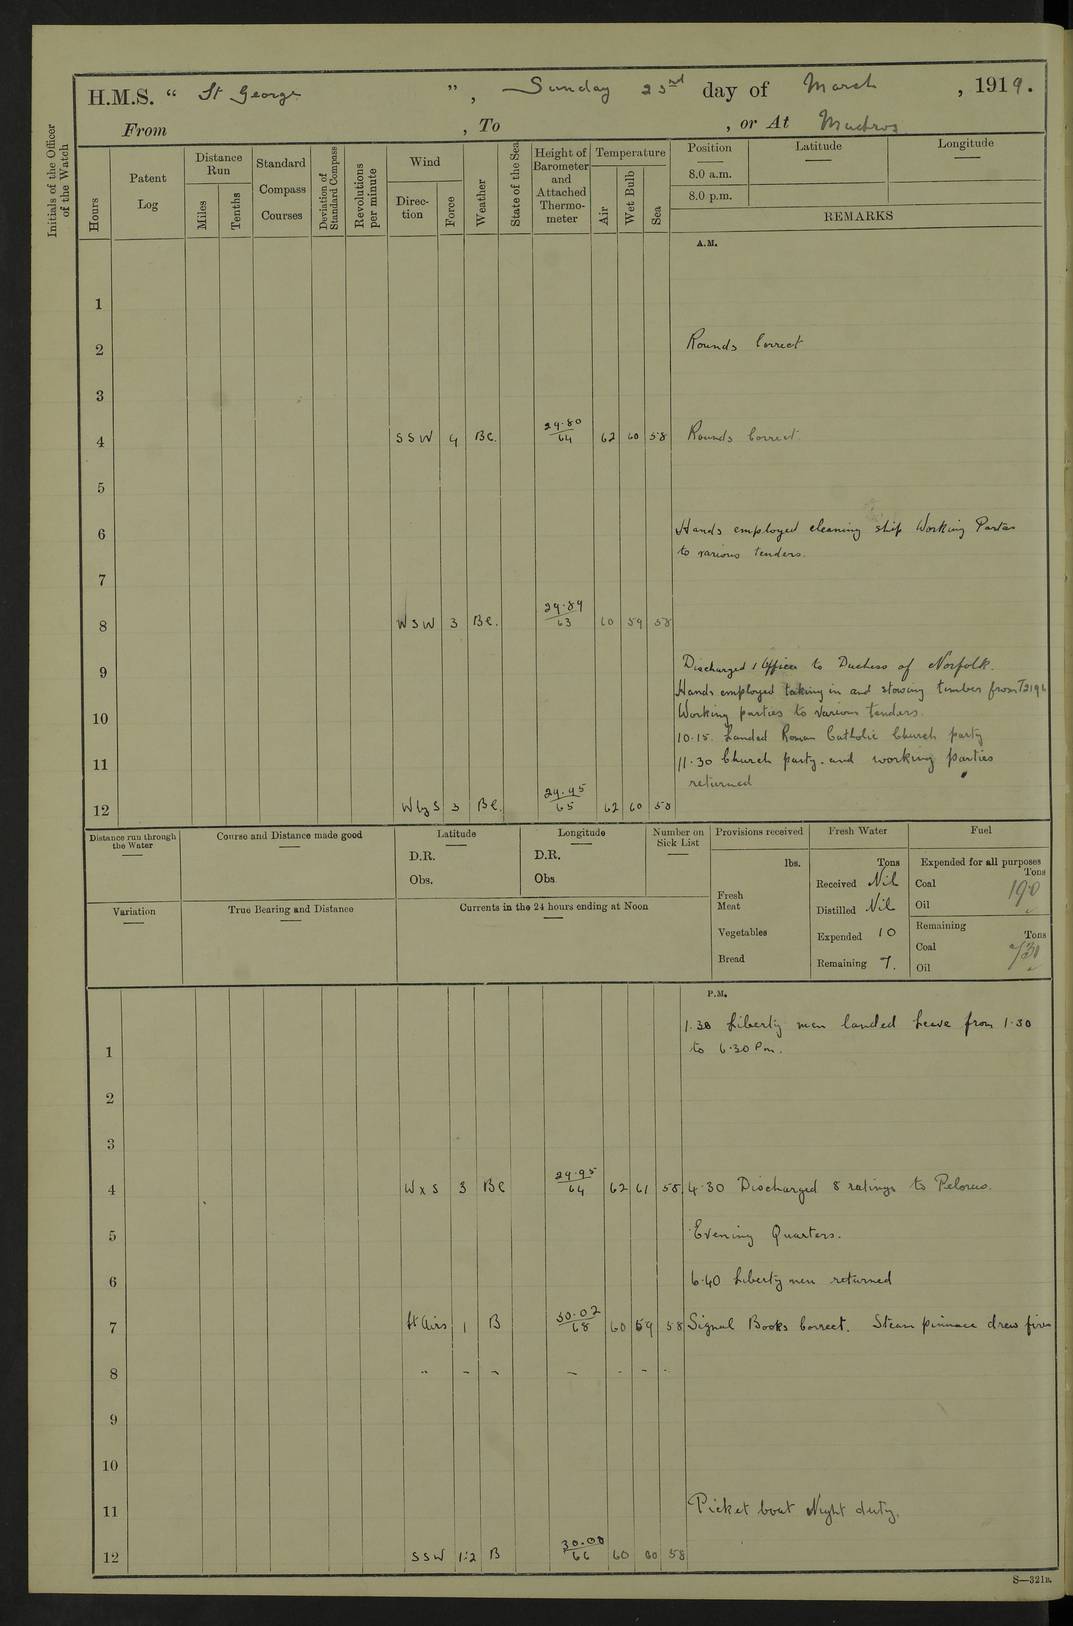 H.M.S. “ St George ” , Sunday 23rd day of March , 1919.
From , To , or At Mudros
Initials of the Officer of the Watch
Hours
Patent Log
Distance Run
Miles
Tenths
Standard Compass Courses
Deviation of Standard Compass
Revolutions per minute
Wind
Direction
Force
Weather
State of the Sea
Height of Barometer and Attached Thermometer
Temperature
Air
Wet Bulb
Sea
Position
8.0 a.m.
8.0 p.m.
Latitude
Longitude
REMARKS
A.M.
1
2 Rounds Correct
3
4 SSW 4 BC. 29.80/64 62 60 58 Rounds Correct
5
6 Hands employed cleaning ship Working Parties
to various tenders.
7
8 WSW 3 BC. 29.89/63 60 59 58
9 Discharged 1 Officer to Duchess of Norfolk.
Hands employed taking in and stowing timber from
10 Working parties to various tenders.
10.15. Landed Roman Catholic Church party
11 11.30 Church party. and working parties
returned
12 W by S 3 BC. 29.95/65 62 60 58
Distance run through the Water
Course and Distance made good
Latitude
D.R.
Obs.
Longitude
D.R.
Obs
Number on Sick List
Provisions received
lbs.
Fresh Meat
Vegetables
Bread
Fresh Water
Tons
Received Nil
Distilled Nil
Expended 10
Remaining 7.
Fuel
Expended for all purposes
Tons
Coal
Oil
Remaining
Tons
Coal
Oil
Variation
True Bearing and Distance
Currents in the 24 hours ending at Noon
P.M.
1.30 Liberty men landed Leave from 1.30
1 to 6.30 Pm.
2
3
4 W x S 3 BC 29.95/64 62 61 58 4.30 Discharged 8 ratings to Pelorus.
5 Evening Quarters.
6 6.40 Liberty men returned
7 Lt Airs 1 B 30.02/68 60 59 58 Signal Books Correct. Steam pinnace drew fires
8 - - - - - - -
9
10
11 Picket boat Night duty.
12 SSW 1.2 B 30.00/66 60 60 58
S—321B.